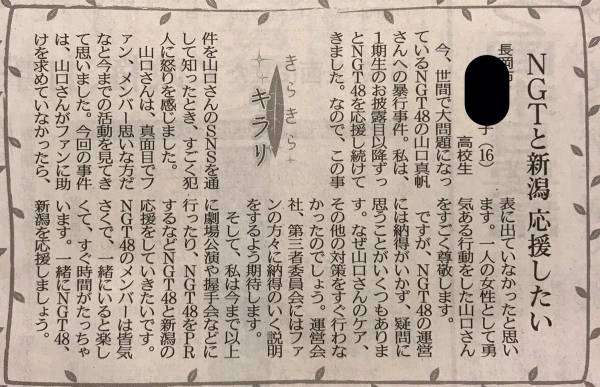 NGTと新潟 応援したい
長岡市
子（16）
高校生
今、世間で大問題になっ
ているNGT48の山口真帆
さんへの暴行事件。私は、
1期生のお披露目以降ずっ
とNGT48を応援し続けて
きました。なので、この事
きらきら
キラリ
件を山口さんのSNSを通
して知ったとき、すごく犯
人に怒りを感じました。
山口さんは、真面目でフ
ァン、メンバー思いな方だ
なと今までの活動を見てき
て思いました。今回の事件
は、山口さんがファンに助
けを求めていなかったら、
表に出ていなかったと思い
ます。一人の女性として勇
気ある行動をした山口さん
をすごく尊敬します。
ですが、NGT48の運営
には納得がいかず、疑問に
思うことがいくつもありま
す。なぜ山口さんのケア、
その他の対策をすぐ行わな
かったのでしょう。運営会
社、第三者委員会にはファ
ンの方々に納得のいく説明
をするよう期待します。
そして、私は今まで以上
に劇場公演や握手会などに
行ったり、NGT48をPR
するなどNGT48と新潟の
応援をしていきたいです。
NGT48のメンバーは皆気
さくで、一緒にいると楽し
くて、すぐ時間がたっちゃ
います。一緒にNGT48、
新潟を応援しましょう。